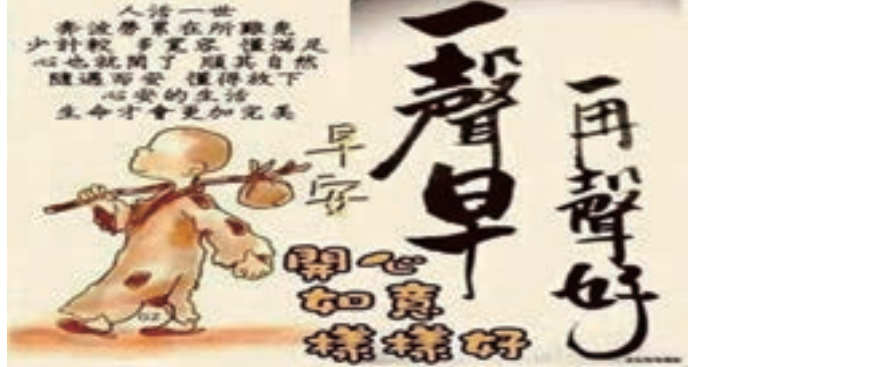 人活一世
奔波勞累在所難免
少計較 多寬容 懂滿足
心也就開了 順其自然
隨遇而安 懂得放下
心安的生活
生命才會更加完美
早安
一聲早
再聲好
開心
如意
樣樣好